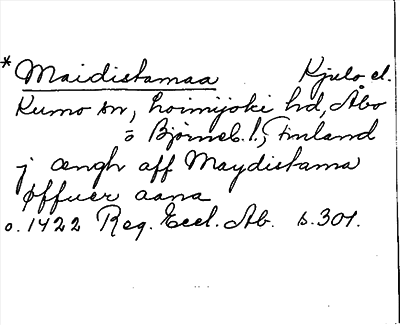 * Maidistamaa Kjulo el.
Kumo sn, Loimijoki hd, Åbo
o Bjørneb. l., Finland
j ængh aff Maydistama
øffuer aana
o. 1422 Reg. Eccl. Ab. s. 301.